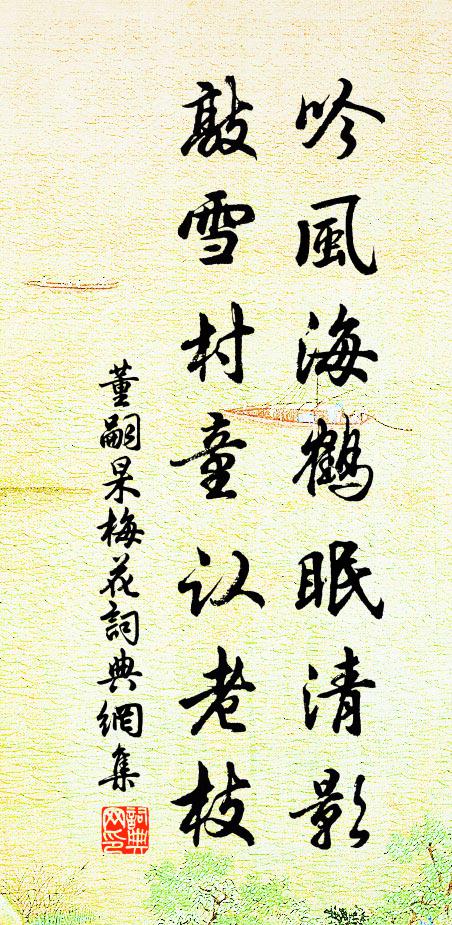 吟風海鶴眠清影
敲雪村童认老枝
董嗣杲梅花詞典網集
詞典网印